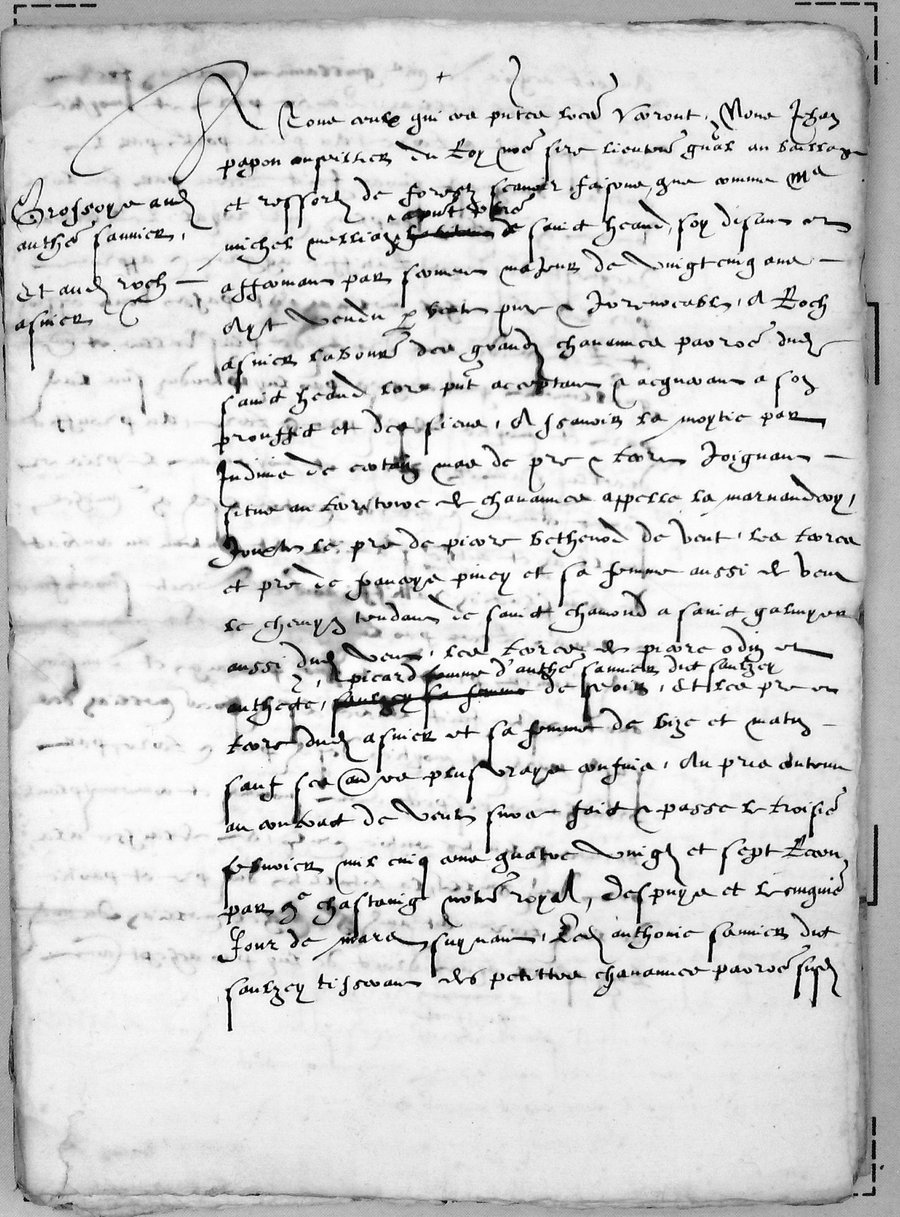 A Tous ceulx qui ces pntes lres verront, Nous Jehan
papon conseiller du Roy nre sire lieutent gnal au bailliage
et ressort de forestz scavoir faisons, que comme Me
michel mellia apnt nre
habitant de sainct heand, soy disant et
affermant par serment majeur de vingtcinq ans
Ayt vendu p vente pure & Irrevocable, A Roch
asnier laboure des grandz chanances parroe dud
sainct heand, lors pnt acceptant & acquerant a soy
prouffit et des siens, A scavoir la moytie par
Indivis de certain mas de pre & terre Joignant
situe au territoire de chanances appelle la marnandery,
Jouxte le pre de pierre bethenod de vent, les terres
et pre de francoys piney et sa femme aussi de vent
le chemyn tendant de sainct chamond a sainct galmyer
aussi dud vent, les terres de pierre odin et
picard femme d'anthe sannier dict saulzey
anthecte, saulzey sa femme de soir, Et les pre et
terre dud asnier et sa femme de bize et matin
sauf ses plus vrays confins, Au pris contenu
au contract de vente sur ce faict & passe le troisie
febvrier mil cinq cens quatre vingtz et sept Receu
par Me chastaing notre royal, despuys et le cinquie
Jour de mars suyvant, Led anthoine sannier dict
saulzey tisserant des petittes chanances parroe susd
Grossoye aud
anthe sannier,
Et aud roch
asnier